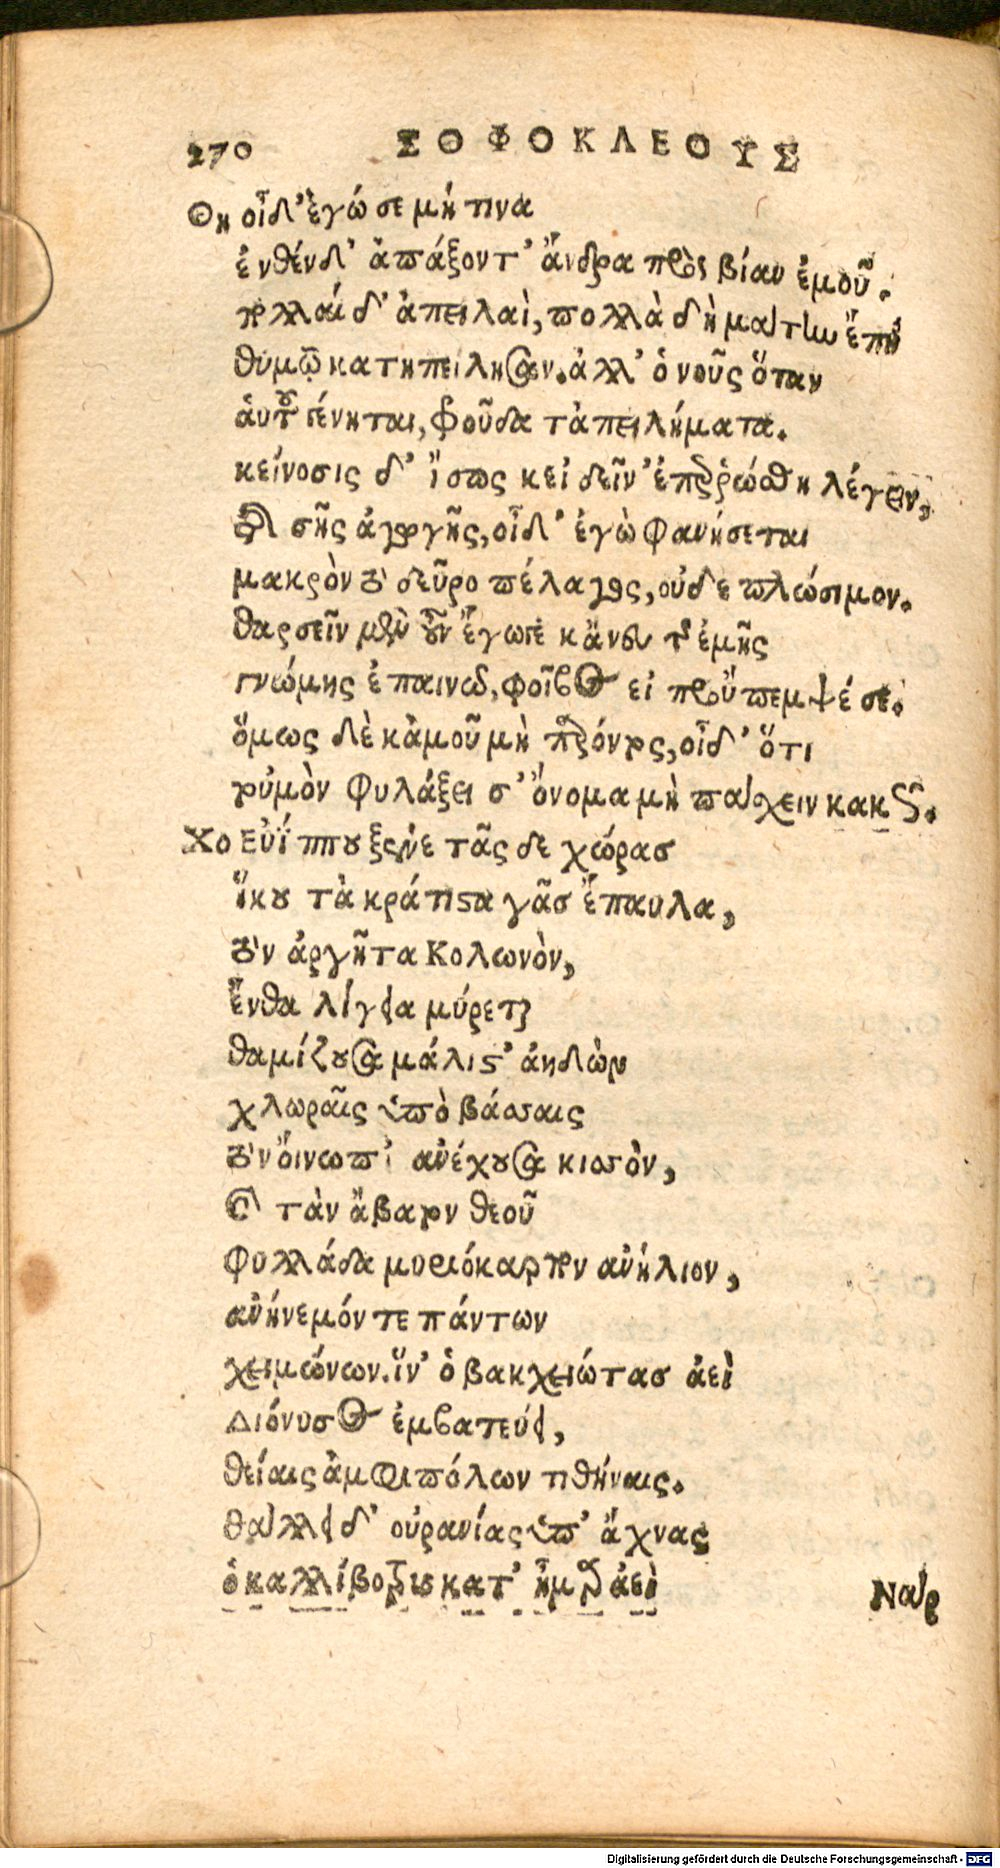 270 ΣΟΦΟΚΛΕΟΥΣ
Θη οἶδ' ἐγώ σε μή τινα
ἐνθένδ' ἀπάξοντ' ἄνδρα πρὸς βίαν ἐμοῦ.
πολλαὶ δ' ἀπειλαὶ, πολλὰ δὴ μάτην ἔπη
θυμῷ κατηπείλησαν. ἀλλ' ὁ νοῦς ὅταν
αὑτοῦ γένηται, φροῦδα τἀπειλήματα.
κείνοισις δ' ἴσως κεἰ δεῖν' ἐπερρώσθη λέγειν,
τῆς σῆς ἀγωγῆς, οἶδ' ἐγὼ φανήσεται
μακρὸν τὸ δεῦρο πέλαγος, οὐδὲ πλώσιμον.
θαρσεῖν μὲν οὖν ἔγωγε κἄνευ τῆς ἐμῆς
γνώμης ἐπαινῶ, φοῖβος εἰ προὔπεμψέ σε.
ὅμως δὲ κἀμοῦ μὴ παρόντος, οἶδ' ὅτι
τοὐμὸν φυλάξει σ' ὄνομα μὴ πάσχειν κακῶς.
Χο Εὐΐππου ξένε τᾶς δε χώρασ
ἵκου τὰ κράτιστα γᾶσ ἔπαυλα,
τὸν ἀργῆτα Κολωνὸν,
ἔνθα λίγεια μύρεται
θαμίζουσα μάλιστ' ἀηδὼν
χλωραῖς ὑπὸ βάσσαις
τὸν οἴνωπ' ἀνέχουσα κισσὸν,
καὶ τὰν ἄβατον θεοῦ
φυλλάδα μυριόκαρπον ἀνήλιον,
ἀνήνεμόν τε πάντων
χειμώνων. ἵν' ὁ βακχειώτασ ἀεὶ
Διόνυσος ἐμβατεύει,
θείαις ἀμφιπόλων τιθήναις.
θάλλει δ' οὐρανίας ὑπ' ἄχνας
ὁ καλλίβοτρυς κατ' ἦμαρ ἀεὶ
Νάρ
Digitalisierung gefördert durch die Deutsche Forschungsgemeinschaft - DFG